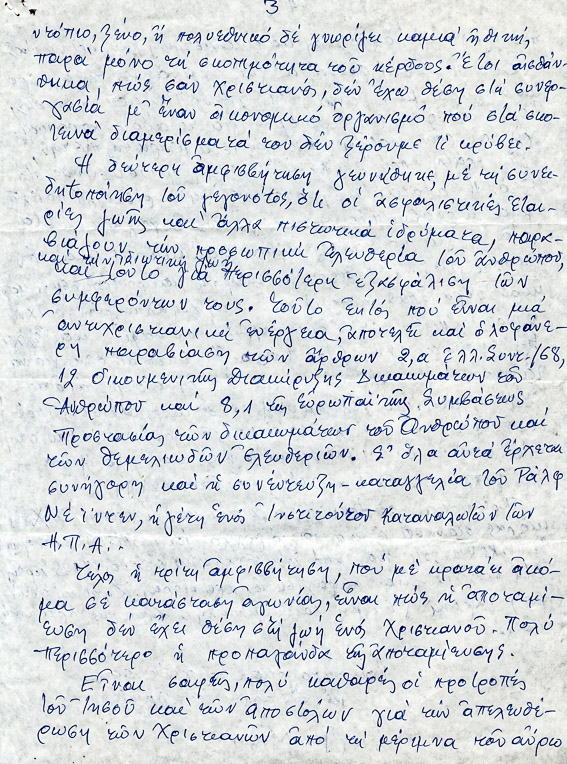 3
ντόπιο, ξένο, ἤ πολυεθνικό δέ γνωρίζει καμιά ἠθική,
παρά μόνο τή σκοπιμότητα τοῦ κέρδους. Ἔτσι αἰσθάν-
θηκα, πώς σάν Χριστιανός, δέν ἔχω θέση στή συνερ-
γασία μ' ἕναν οἰκονομικό ὀργανισμό πού στά σκο-
τεινά διαμερίσματά του δέν ξέρουμε τί κρύβει.
Ἡ δεύτερη ἀμφισβήτηση γεννήθηκε, μέ τή συνει-
δητοποίηση τοῦ γεγονότος, ὅτι οἱ ἀσφαλιστικές ἑται-
ρίες ζωῆς καί ἄλλα πιστωτικά ἱδρύματα, παρα-
βιάζουν τήν προσωπική ἐλευθερία τοῦ ἀνθρώπου,
καί τήν ἰδιωτική ζωή
καί τοῦτο γιά περισσότερη ἐξασφάλιση τῶν
συμφερόντων τους. Τοῦτο ἐκτός πού εἶναι μιά
ἀντιχριστιανική ἐνέργεια, ἀποτελεῖ καί ὁλοφάνε-
ρη παραβίαση τῶν ἄρθρων 2,α Ἑλλ. Συντ./68,
12 Οἰκουμενικῆς Διακήρυξης Δικαιωμάτων τοῦ
Ἀνθρώπου καί 8,1 τῆς Εὐρωπαϊκῆς Συμβάσεως
Προστασίας τῶν δικαιωμάτων τοῦ Ἀνθρώπου καί
τῶν θεμελιωδῶν ἐλευθεριῶν. Σ' ὅλα αὐτά ἔρχεται
συνήγορη καί ἡ συνέντευξη-καταγγελία τοῦ Ράλφ
Νέϊντερ, ἡγέτη ἑνός Ἰνστιτούτου Καταναλωτῶν τῶν
Η.Π.Α..
Τέλος ἡ τρίτη ἀμφισβήτηση, πού μέ κρατάει ἀκό-
μα σέ κατάσταση ἀγωνίας, εἶναι πώς ἡ ἀποταμί-
ευση δέν ἔχει θέση στή ζωή ἑνός Χριστιανοῦ. Πολύ
περισσότερο ἡ προπαγάνδα τῆς ἀποταμίευσης.
Εἶναι σαφεῖς, πολύ καθαρές οἱ προτροπές
τοῦ Ἰησοῦ καί τῶν ἀποστόλων γιά τήν ἀπελευθέ-
ρωση τῶν Χριστιανῶν ἀπό τή μέριμνα τοῦ αὔριο